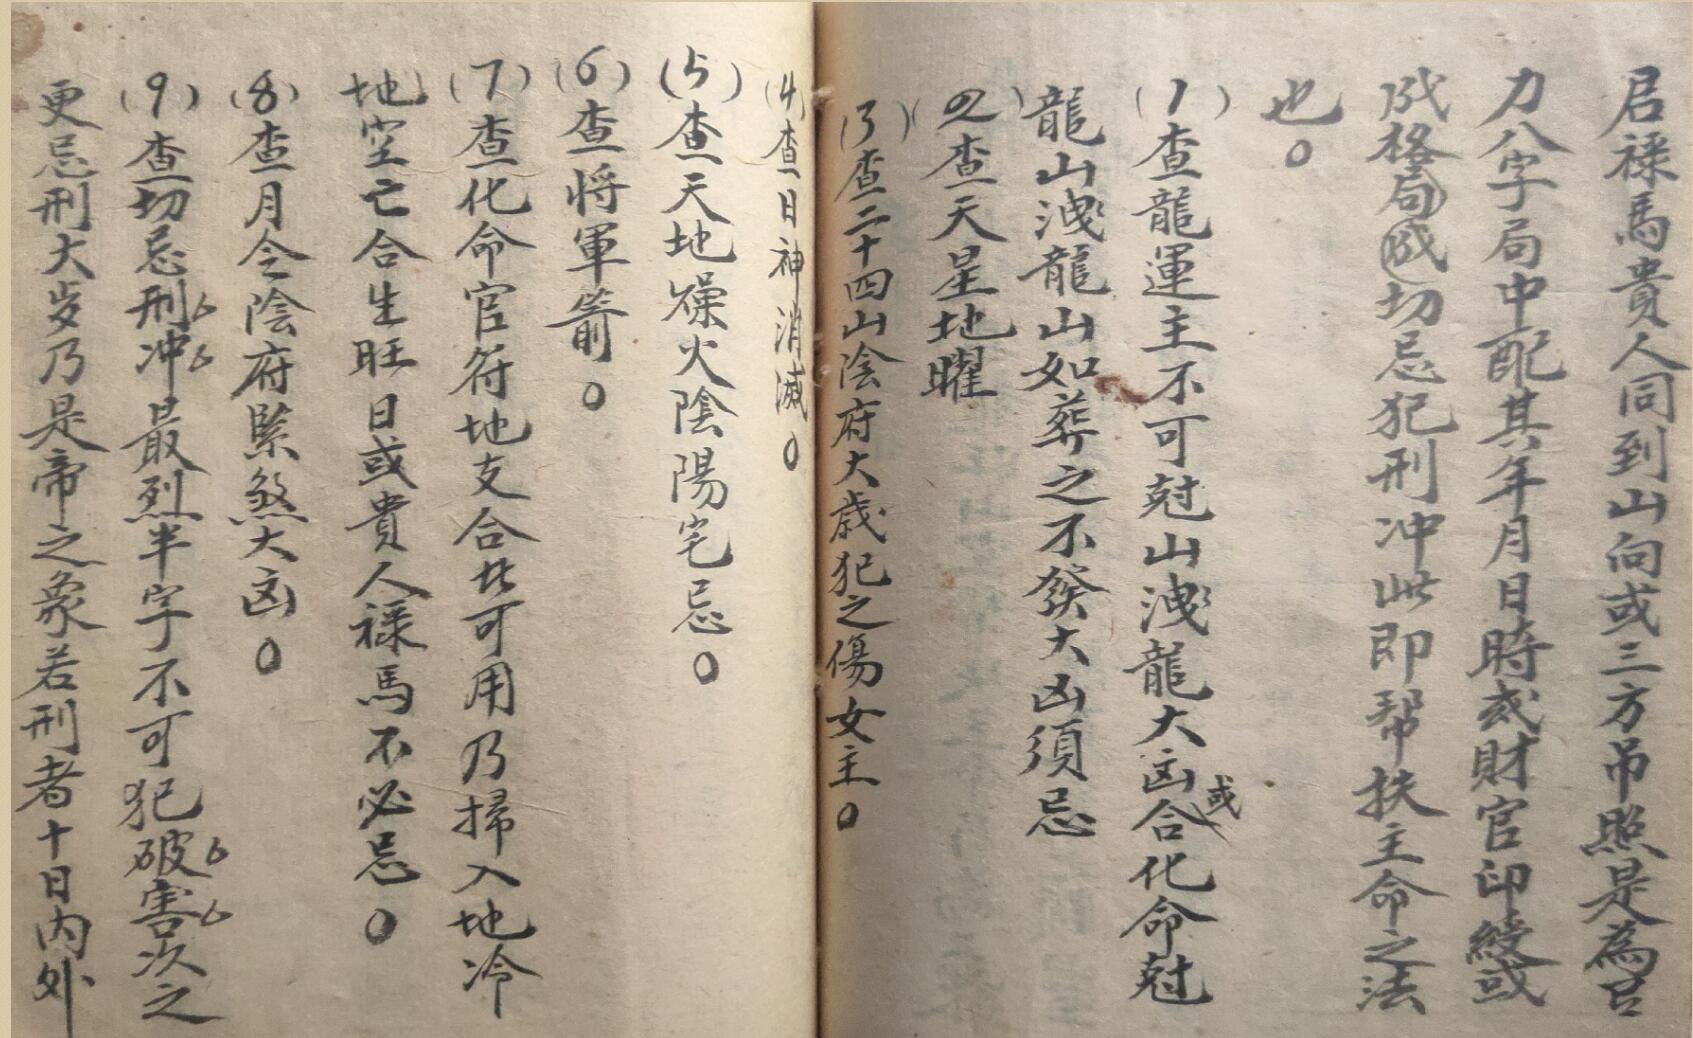 君禄馬貴人同到山向或三方吊照是為吕
力八字局中配其年月日時或財官印綬或
成格局成切忌犯刑冲此即帮扶主命之法
也。
(1)查龍運主不可尅山洩龍大凶合或化命尅
龍山洩龍山如葬之不發大凶須忌
(2)查天星地曜
(3)查二十四山陰府大歲犯之傷女主。
(4)查日神消滅。
(5)查天地燥火陰陽宅忌。
(6)查将軍箭。
(7)查化命官符地支合廿可用乃掃入地冷
地空亡合生旺日或貴人禄馬不必忌。
(8)查月令陰府緊煞大凶。
(9)查切忌刑冲最烈半字不可犯破害次之
更忌刑大岁乃是帝之象若刑者十日内外